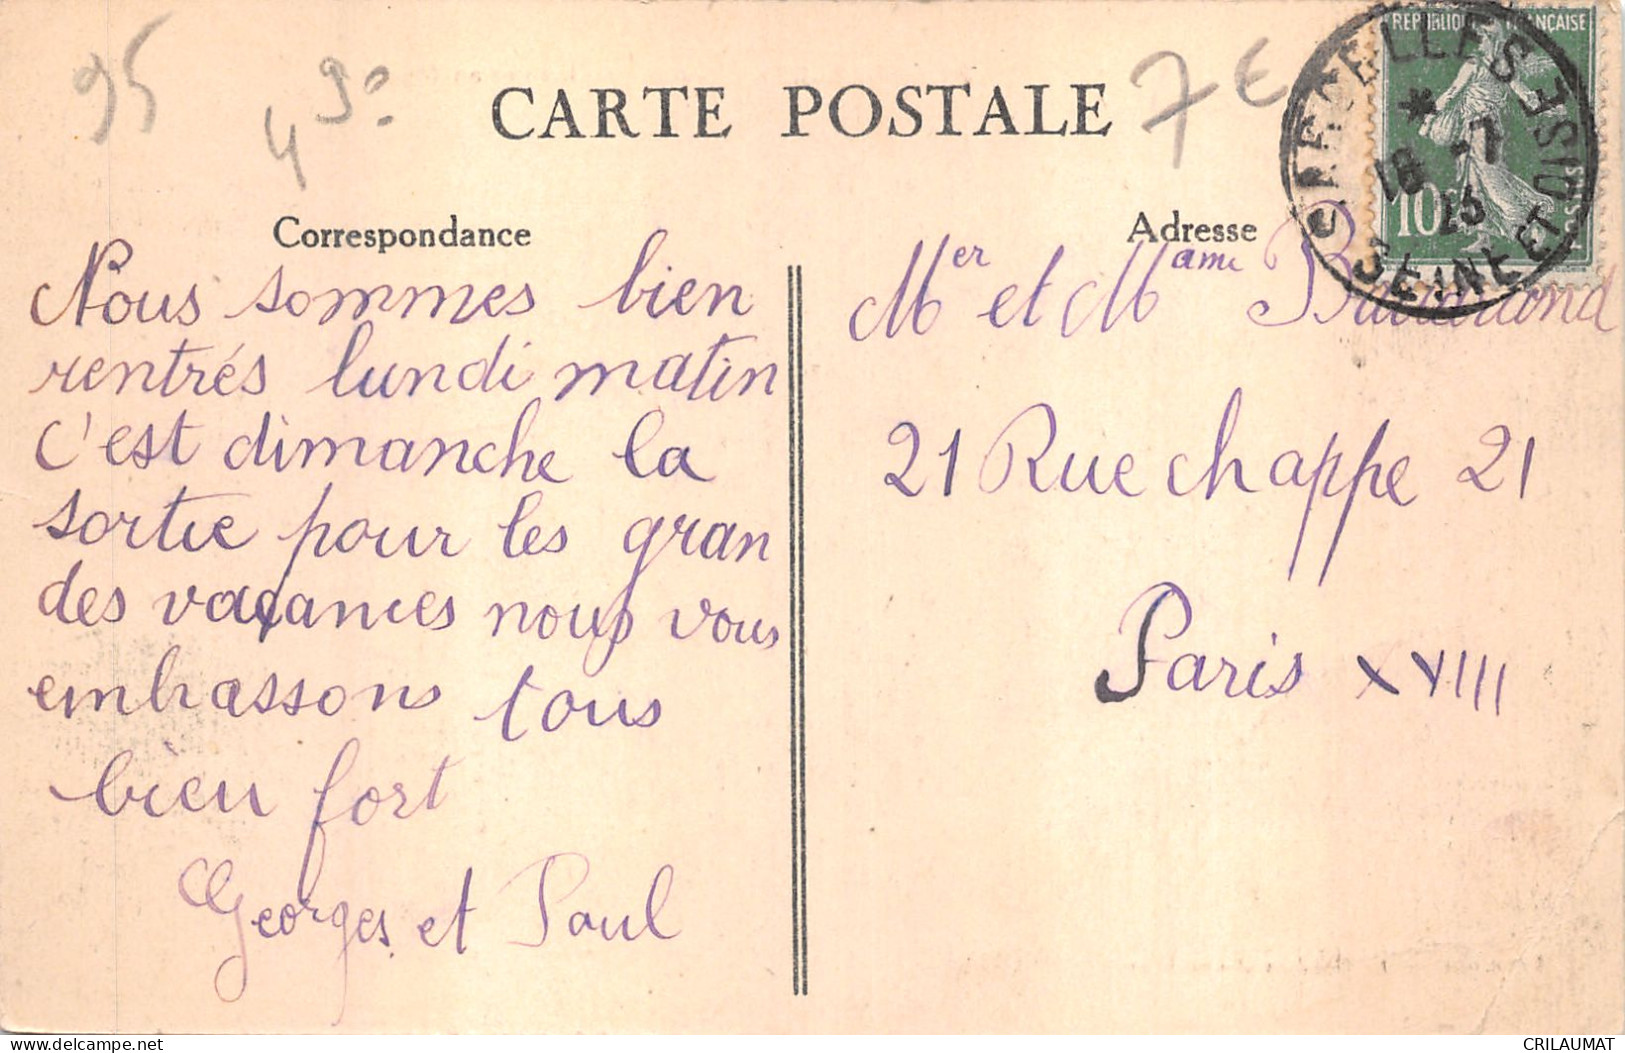 95
4
9°
7€
CARTE POSTALE
REPUBLIQUE FRANÇAISE
10
SARCELLES
*
18 -7
23
SEINE ET OISE
Correspondance
Nous sommes bien
rentrés lundi matin
c'est dimanche la
sortie pour les gran
des vacances nous vous
embrassons tous
bien fort
Georges et Paul
Adresse
Mer et Mame
21 Rue chappe 21
Paris XVIII
delcampe.net
CRILAUMAT